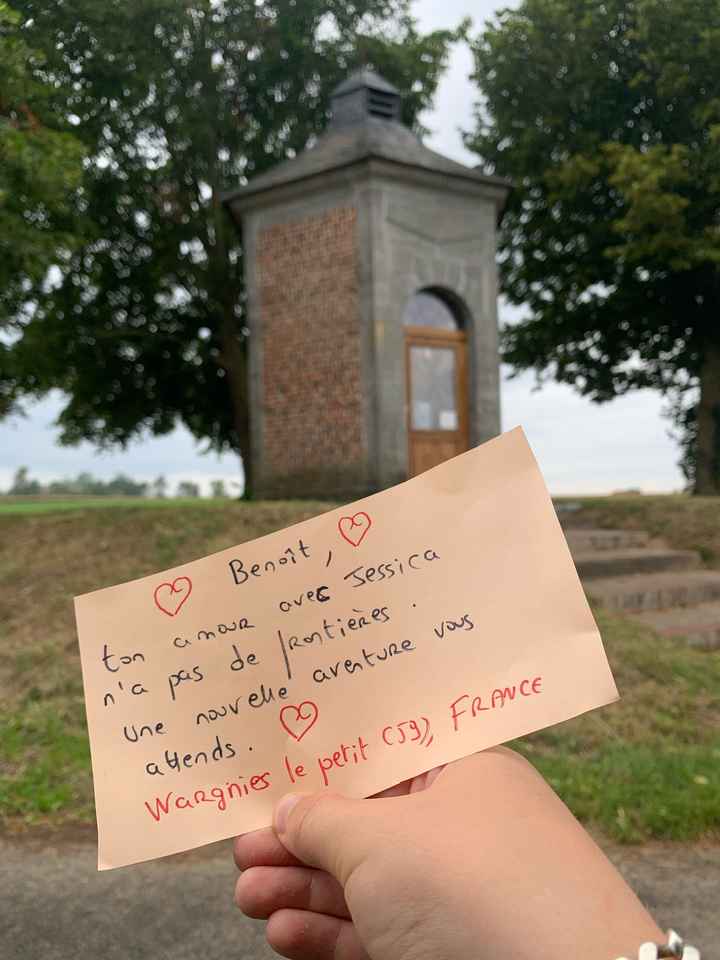 Benoît,
ton amour avec Jessica
n'a pas de frontières.
Une nouvelle aventure vous
attends.
Wargnies le petit (59), FRANCE